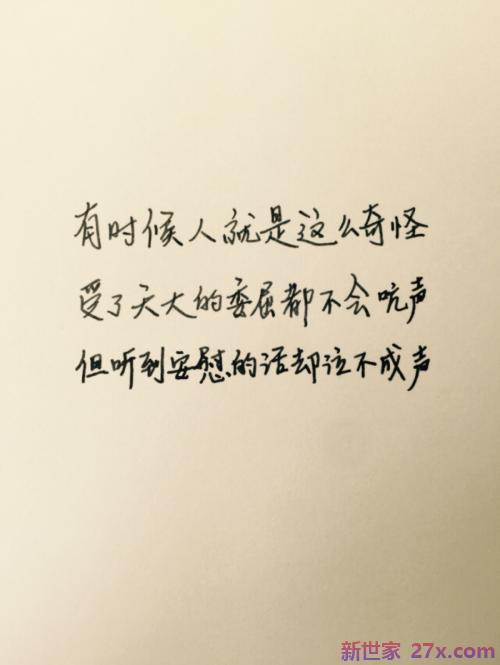 有时候人就是这么奇怪
受了天大的委屈都不会吭声
但听到安慰的话却泣不成声
新世家 27x.com